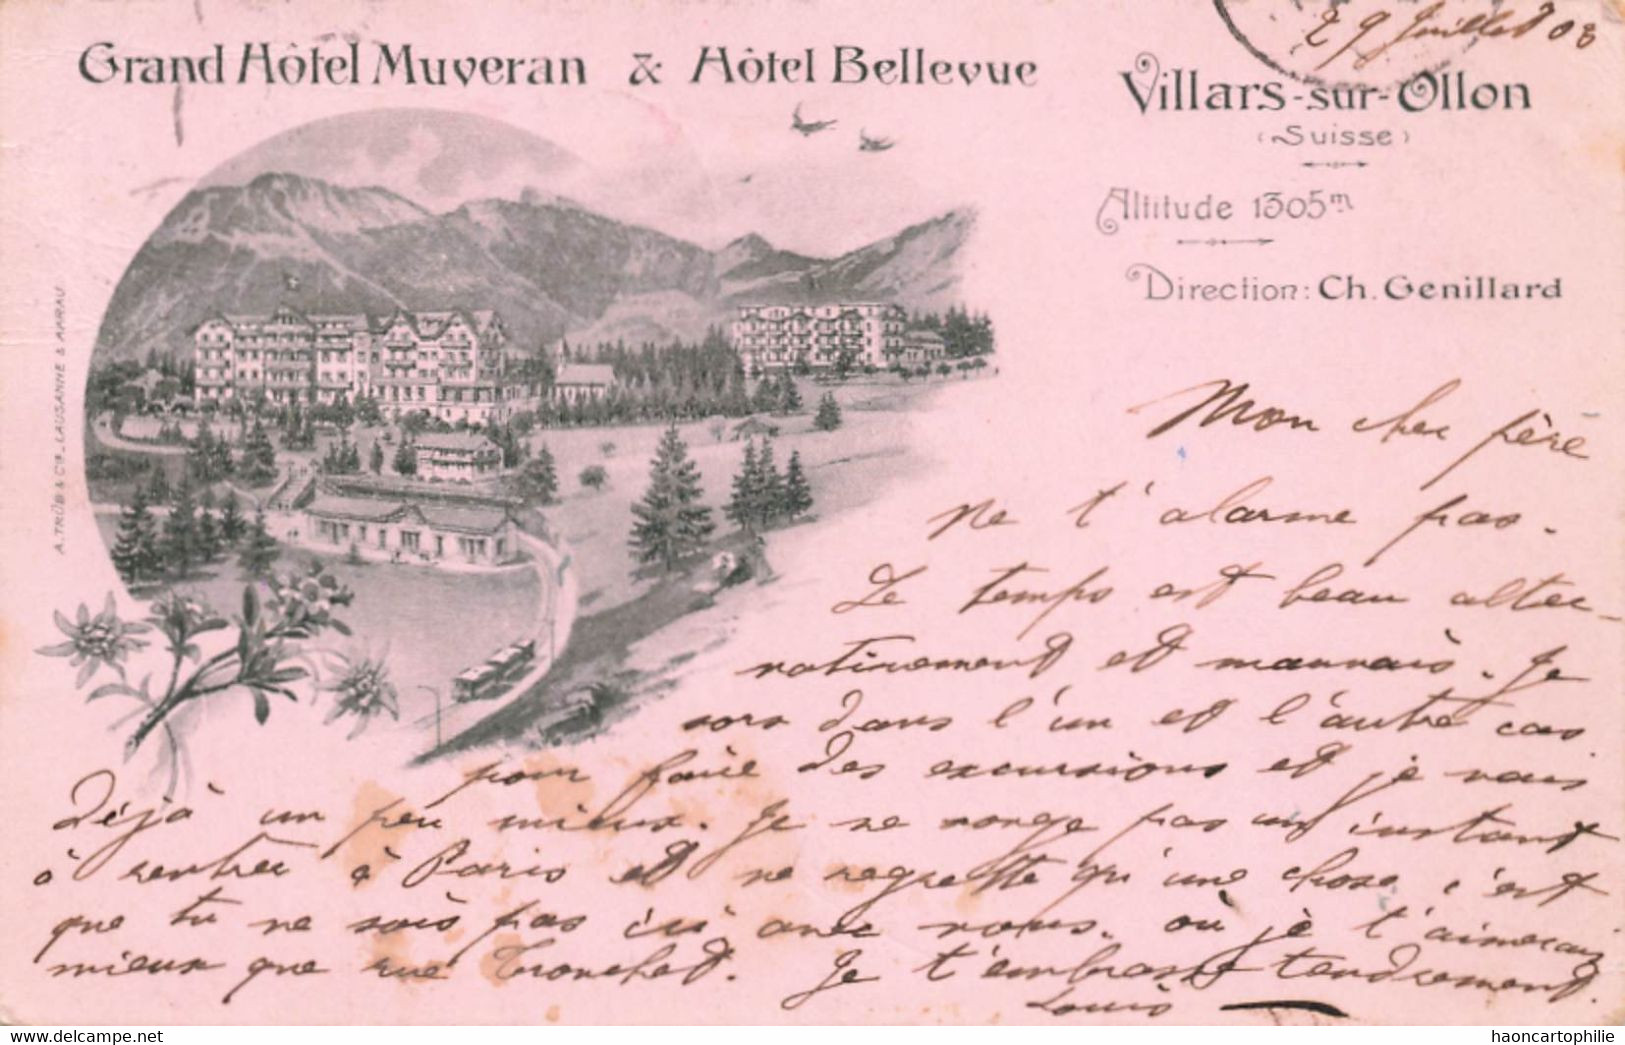 29 Juillet 03
Grand Hôtel Muveran & Hôtel Bellevue
Villars-sur-Ollon
(Suisse)
Altitude 1305m
Direction: Ch. Genillard
A. TRÜB & Cie. LAUSANNE & AARAU
Mon cher père
Ne t'alarme pas.
Le temps est beau alter-
nativement et mauvais. Je
sors dans l'un et l'autre cas
pour faire des excursions et je vais
déjà un peu mieux. Je ne songe pas un instant
à rentrer à Paris et ne regrette qu'une chose c'est
que tu ne sois pas ici avec nous. où je t'aimerais
mieux que rue Tronchet. Je t'embrasse tendrement.
Louis
Delcampe.net
haoncartophilie